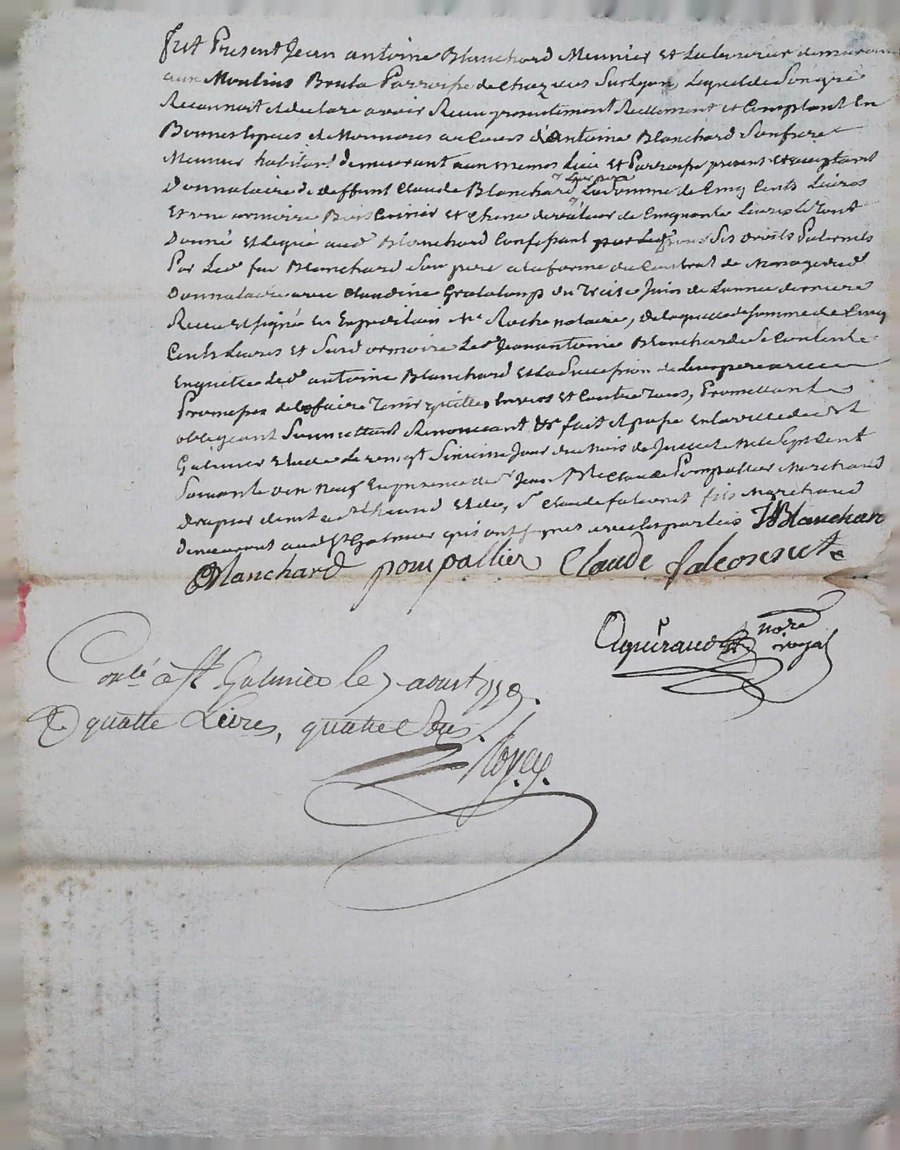 fut Present Jean antoine Blanchard Meunier et Laboureur demeurant
aux Moulins Paroisse de Chazelles Sur Lyon, Lequel de Son gré
Reconnoit et declare avoir Receu presentement Reellement et Comptant En
Bonnes Espèces de Monnoies au Cours d'antoine Blanchard Son frere
Meunier habitant demeurant aux memes Lieu et Parroisse present et acceptant
Donnataire de deffunt Claude Blanchard Leur pere La Somme de Cinq Cents Livres
Et une armoire Bois Cerisier et Chene de valeur de Cinquante Livres Le Tout
Donné et Legué aud Blanchard Confessant pour Ses droits Paternels
Par Led feu Blanchard Son pere a la forme du Contrat de Mariage dud
Donnataire avec Claudine Grataloup du Treise Juin de L'année derniere
Receu et signé En Expedition Me Roche notaire, de laquelle Somme de Cinq
Cents Livres et Susd armoire Led Jean antoine Blanchard Se Contente
En quitte Led antoine Blanchard et La Succession de Leur pere avec
Promesses de Les faire Tenir quittes Envers et Contre Tous, Promettant
obligeant Soumettant Renonceant &c fait et passé En la ville de St
Galmier Etude Le vingt Sixieme Jour du Mois de Juillet Mil Sept Cent
En presence de Sr Jean Pompallier Marchand
drapier et de Sr Claude falconet fils Marchand
demeurant aud St Galmier qui ont signés avec les parties JABlanchar
ABlanchard pompallier Claude falconnet
Guéraud nore royal
Conlé à St Galmier le 7 aoust
R quatre Livres, quatre Sols.